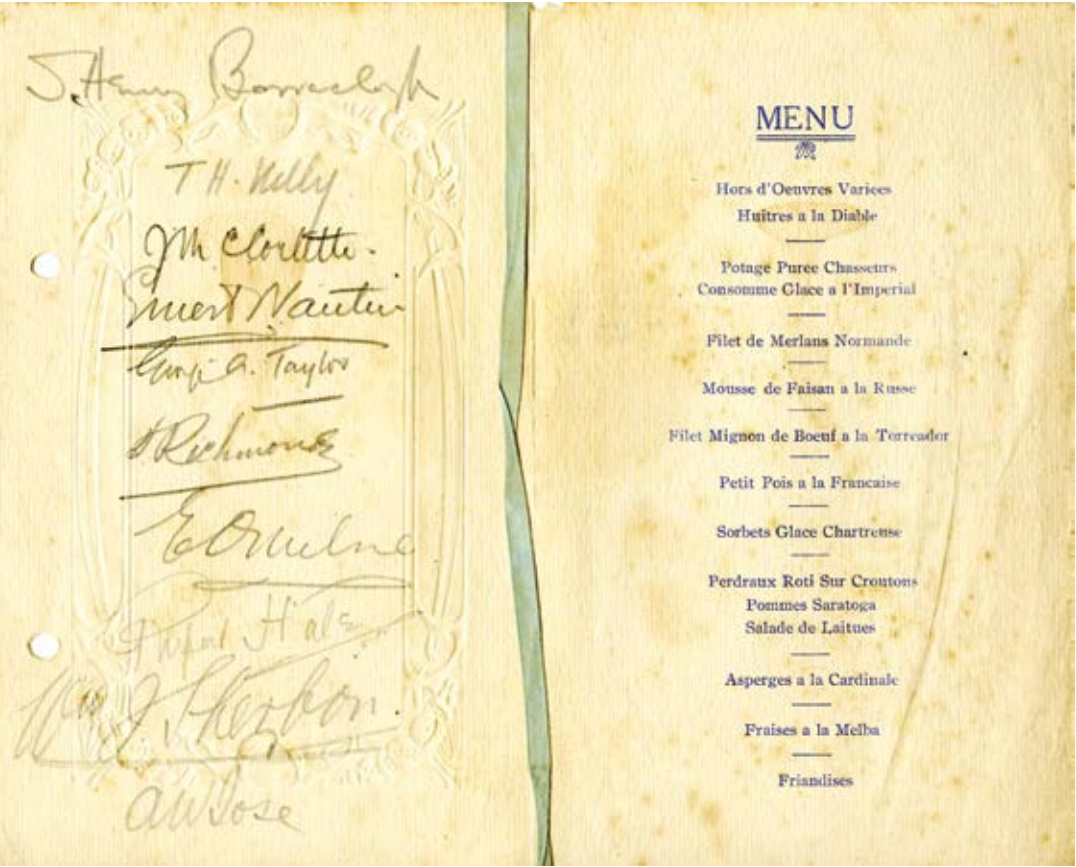 S. Henry Barraclough
T H. Kelly
George A. Taylor
Richmond
E O Milne
Hale
A W Jose
MENU
Hors d'Oeuvres Variees
Huitres a la Diable
Potage Puree Chasseurs
Consomme Glace a l'Imperial
Filet de Merlans Normande
Mousse de Faisan a la Russe
Filet Mignon de Boeuf a la Torreador
Petit Pois a la Francaise
Sorbets Glace Chartreuse
Perdraux Roti Sur Croutons
Pommes Saratoga
Salade de Laitues
Asperges a la Cardinale
Fraises a la Melba
Friandises